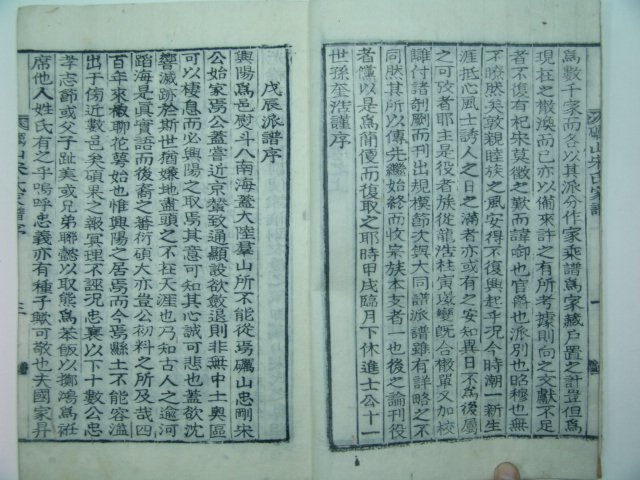 爲數千家而各以其派分作家乘譜爲家藏戶置之計豈但爲
現在之散渙而已亦以備來許之有所考據則向之文獻不足
者不復有杞宋莫徵之歎而諱啣也官爵也派別也昭穆也無
不瞭然矣敦親睦族之風安得不復興起乎況今時潮一新生
涯抵心風士誘人之日之滿者亦或有之安知異日不爲後屬
之可攷者耶主是役者族從龍浩柱寅璇燮旣合檄單又加校
讎付諸剞劂而刊出規模節次與大同譜派譜雖有詳畧之不
同然其所以傳先繼始終而收宗族本支者一也後之論刊役
者慢以是爲簡便而復取之耶時甲戌臨月下休進士公十一
世孫奎浩謹序
礪山宋氏家譜
一
戊辰派譜序
興陽爲邑熨斗入南海蓋大陸羣山所不能從焉礪山忠剛宋
公始家焉公蓋嘗近京輦致通顯設欲斂退則非無中土奧區
可以棲息而必興陽之取焉其意可知其心誠可悲也蓋欲沈
響滅跡於斯世猶嫌地盡頭之不在天涯也乃知古人之逾河
蹈海是眞實語而後裔之蕃衍碩大亦豈公初料之所及哉四
百年來椒聊花萼始也惟興陽之居焉而今焉縣土不能容溢
出于傍近數邑矣碩果之報冥理不誣況忠襄以下十數公忠
孝志節或父子趾美或兄弟聯懿以取熊爲茶飯以擲鴻爲袵
席他人姓氏有之乎嗚呼忠義亦有種子歟可敬也夫國家昇
礪山宋氏家譜序